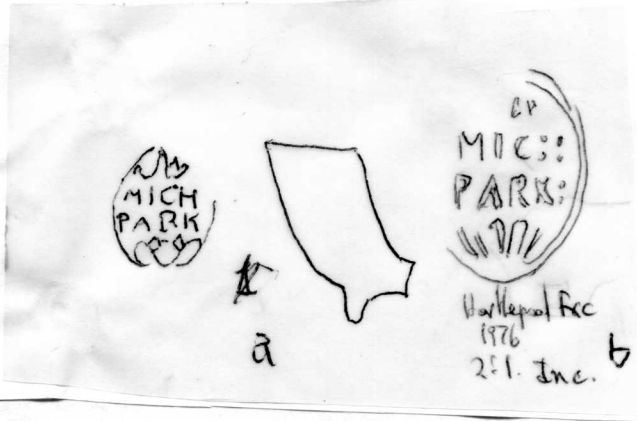 MICH
PARK
a
MIC::
PARK:
Hartlepool Exc
1976
2:1. Inc.
b